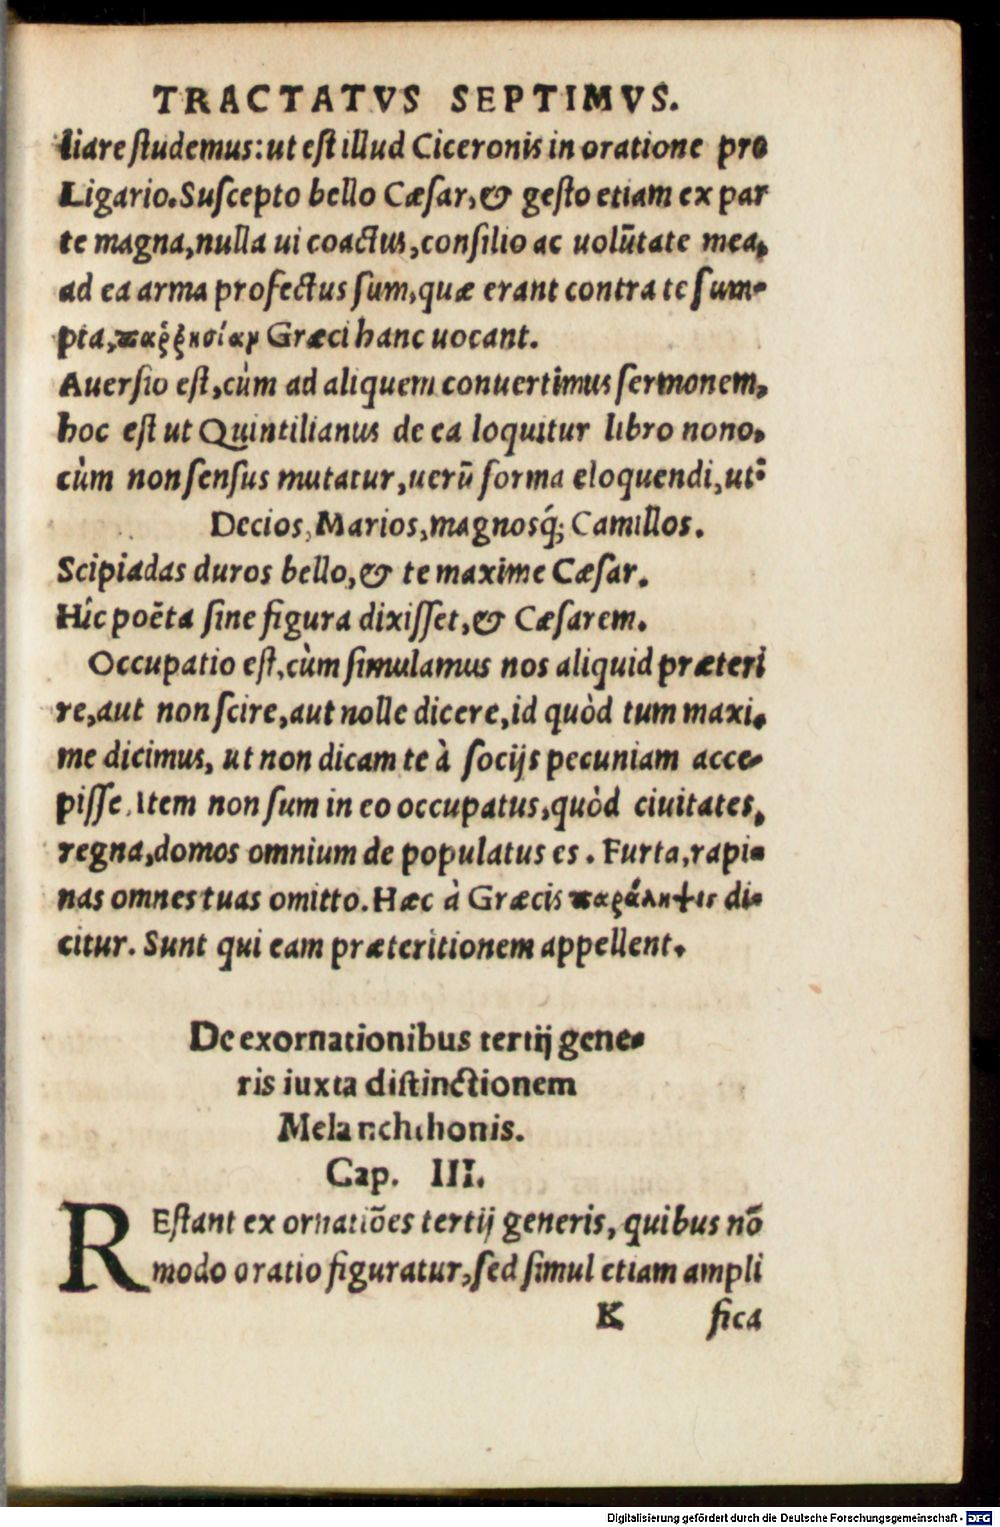 TRACTATVS SEPTIMVS.
liare studemus: ut est illud Ciceronis in oratione pro
Ligario. Suscepto bello Cæsar, & gesto etiam ex par
te magna, nulla ui coactus, consilio ac uolũtate mea,
ad ea arma profectus sum, quæ erant contra te sum-
pta, παῤῥησίαν Græci hanc uocant.
Auersio est, cùm ad aliquem conuertimus sermonem,
hoc est ut Quintilianus de ea loquitur libro nono,
cùm non sensus mutatur, uerũ forma eloquendi, ut:
Decios, Marios, magnosq́; Camillos.
Scipiadas duros bello, & te maxime Cæsar.
Hîc poëta sine figura dixisset, & Cæsarem.
Occupatio est, cùm simulamus nos aliquid præteri
re, aut non scire, aut nolle dicere, id quòd tum maxi-
me dicimus, ut non dicam te à socijs pecuniam acce-
pisse. Item non sum in eo occupatus, quòd ciuitates,
regna, domos omnium de populatus es. Furta, rapi-
nas omnes tuas omitto. Hæc à Græcis παράληψις di-
citur. Sunt qui eam præteritionem appellent.
De exornationibus tertij gene-
ris iuxta distinctionem
Melanchthonis.
Cap. III.
REstant ex ornatiões tertij generis, quibus nõ
modo oratio figuratur, sed simul etiam ampli
K fica
Digitalisierung gefördert durch die Deutsche Forschungsgemeinschaft - DFG